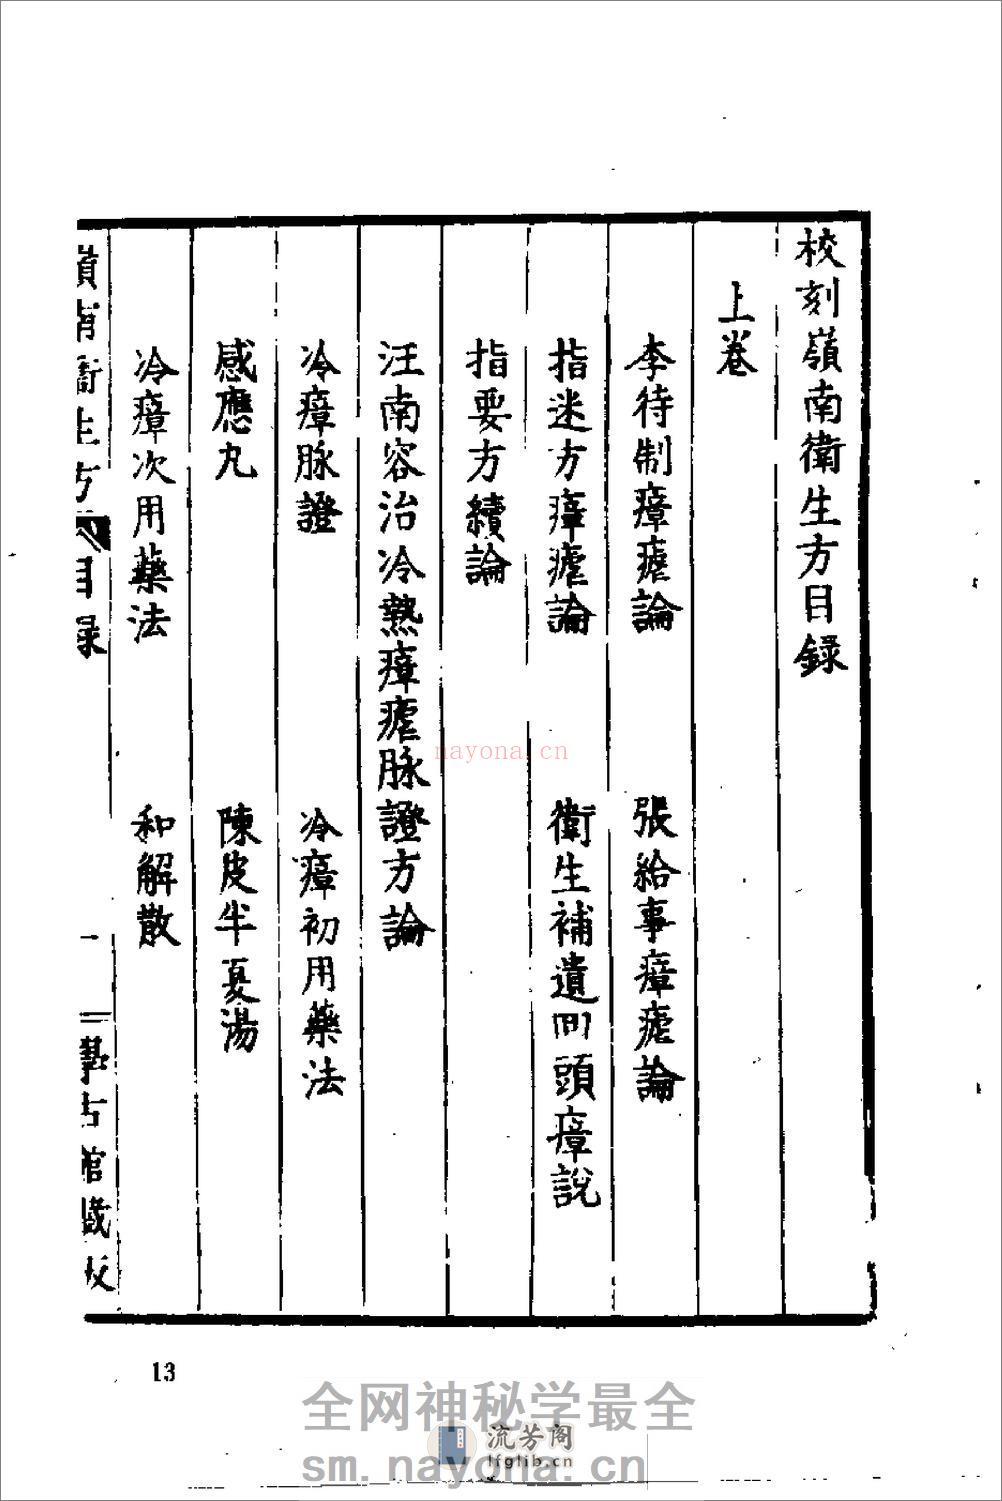 校刻嶺南衛生方目録
上卷
李待制瘴瘧論　張給事瘴瘧論
指迷方瘴瘧論　衛生補遺回頭瘴說
指要方續論
汪南容治冷熱瘴瘧脉證方論
冷瘴脉證　冷瘴初用藥法
感應丸　陳皮半夏湯
冷瘴次用藥法　和解散
嶺南衛生方　目録　一　學古館藏板
nayona.cn
13
全网神秘学最全
流芳阁
lfglib.cn
sm.nayona.cn